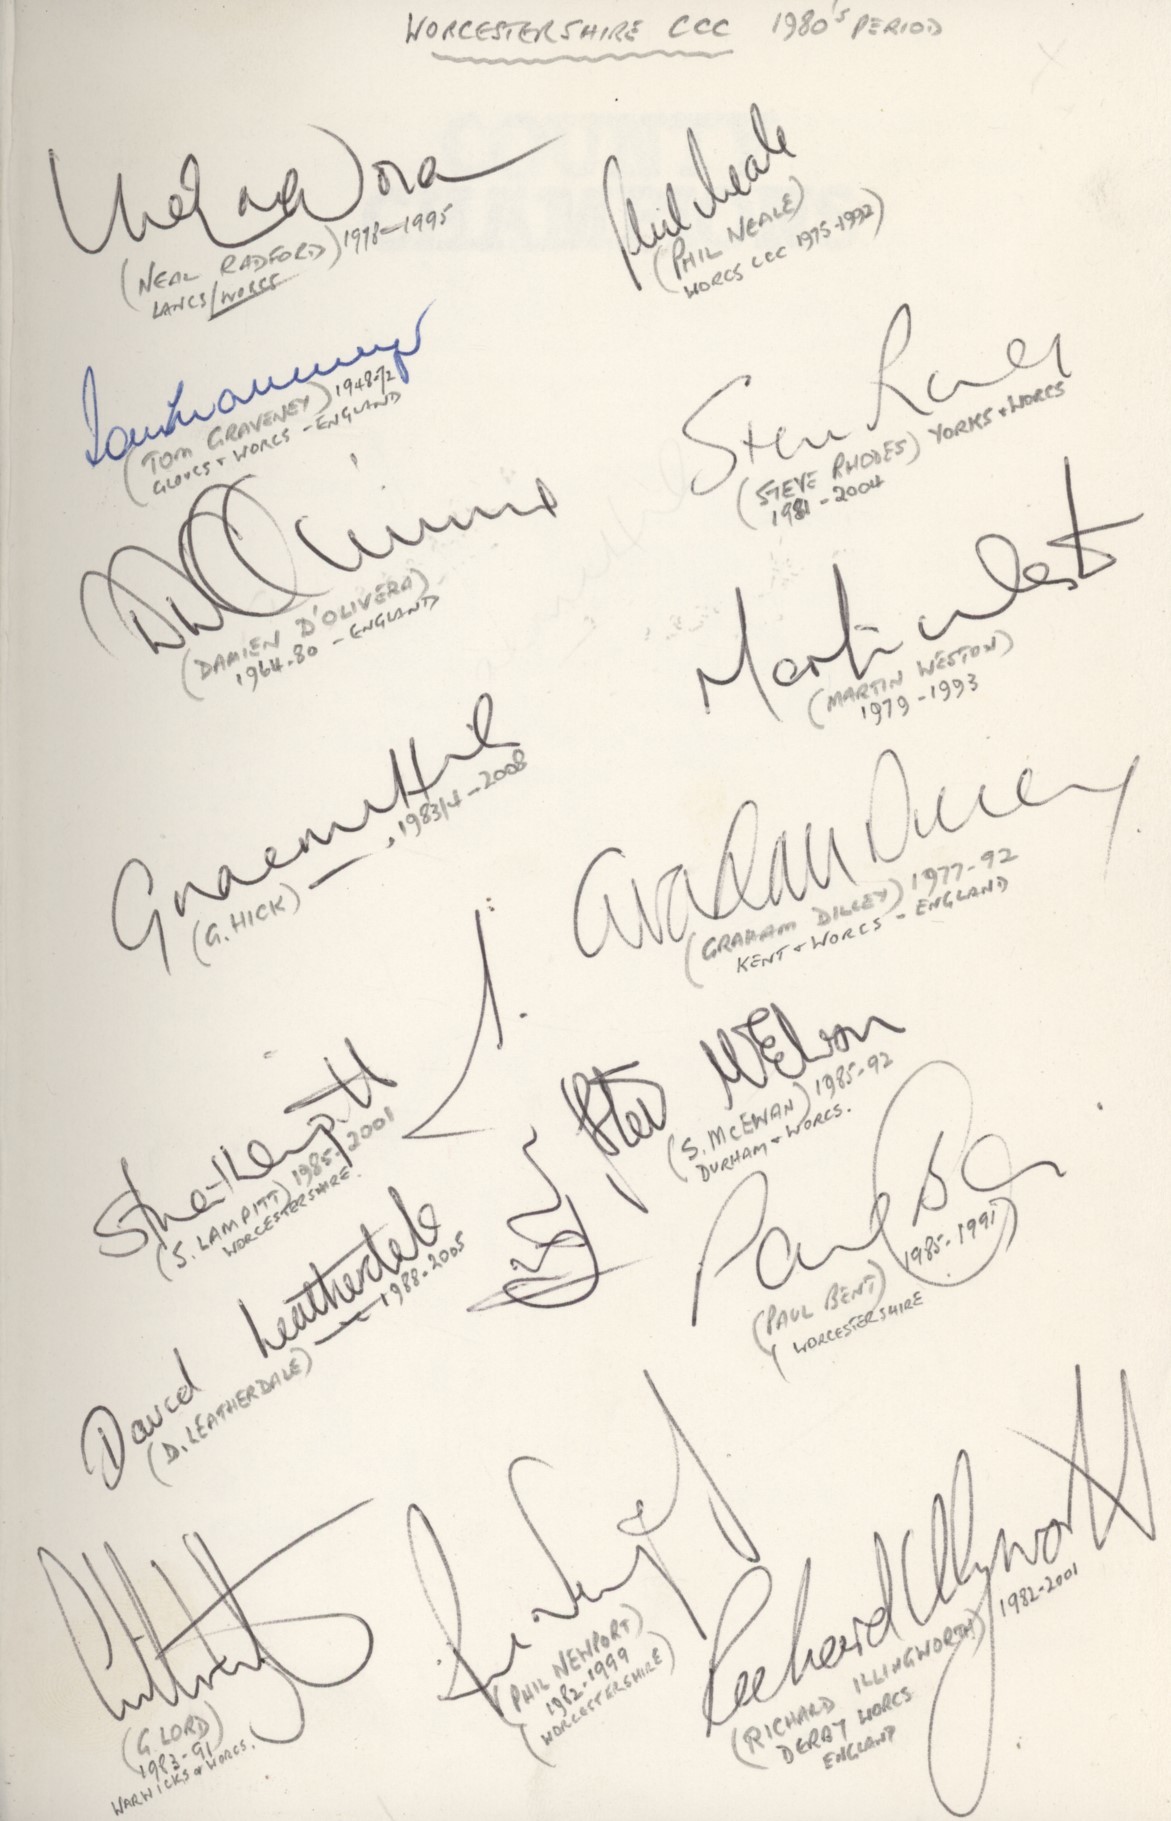 WORCESTERSHIRE CCC 1980'S PERIOD
(NEAL RADFORD) 1978-1995
LANCS/WORCS
Phil Neale
(PHIL NEALE)
WORCS CCC 1975-1992)
(TOM GRAVENEY) 1948-72
GLOUCS + WORCS - ENGLAND
(STEVE RHODES) YORKS + WORCS
1981-2004
(DAMIEN D'OLIVERA)
1964-80 - ENGLAND
Martin Weston
(MARTIN WESTON)
1979-1993
Graeme Hick
(G. HICK) — 1983/4-2008
Graham Dilley
(GRAHAM DILLEY) 1977-92
KENT + WORCS - ENGLAND
Steve McEwan
(S. McEWAN) 1985-92
DURHAM + WORCS.
(S. LAMPITT) 1985-2001
WORCESTERSHIRE.
Paul Bent
(PAUL BENT) 1985-1991)
WORCESTERSHIRE
David Leatherdale
(D. LEATHERDALE) — 1988-2005
(G. LORD)
1983-91
WARWICKS & WORCS.
(PHIL NEWPORT)
1982-1999
(WORCESTERSHIRE)
Richard Illingworth
(RICHARD ILLINGWORTH) 1982-2001
DERBY WORCS
ENGLAND